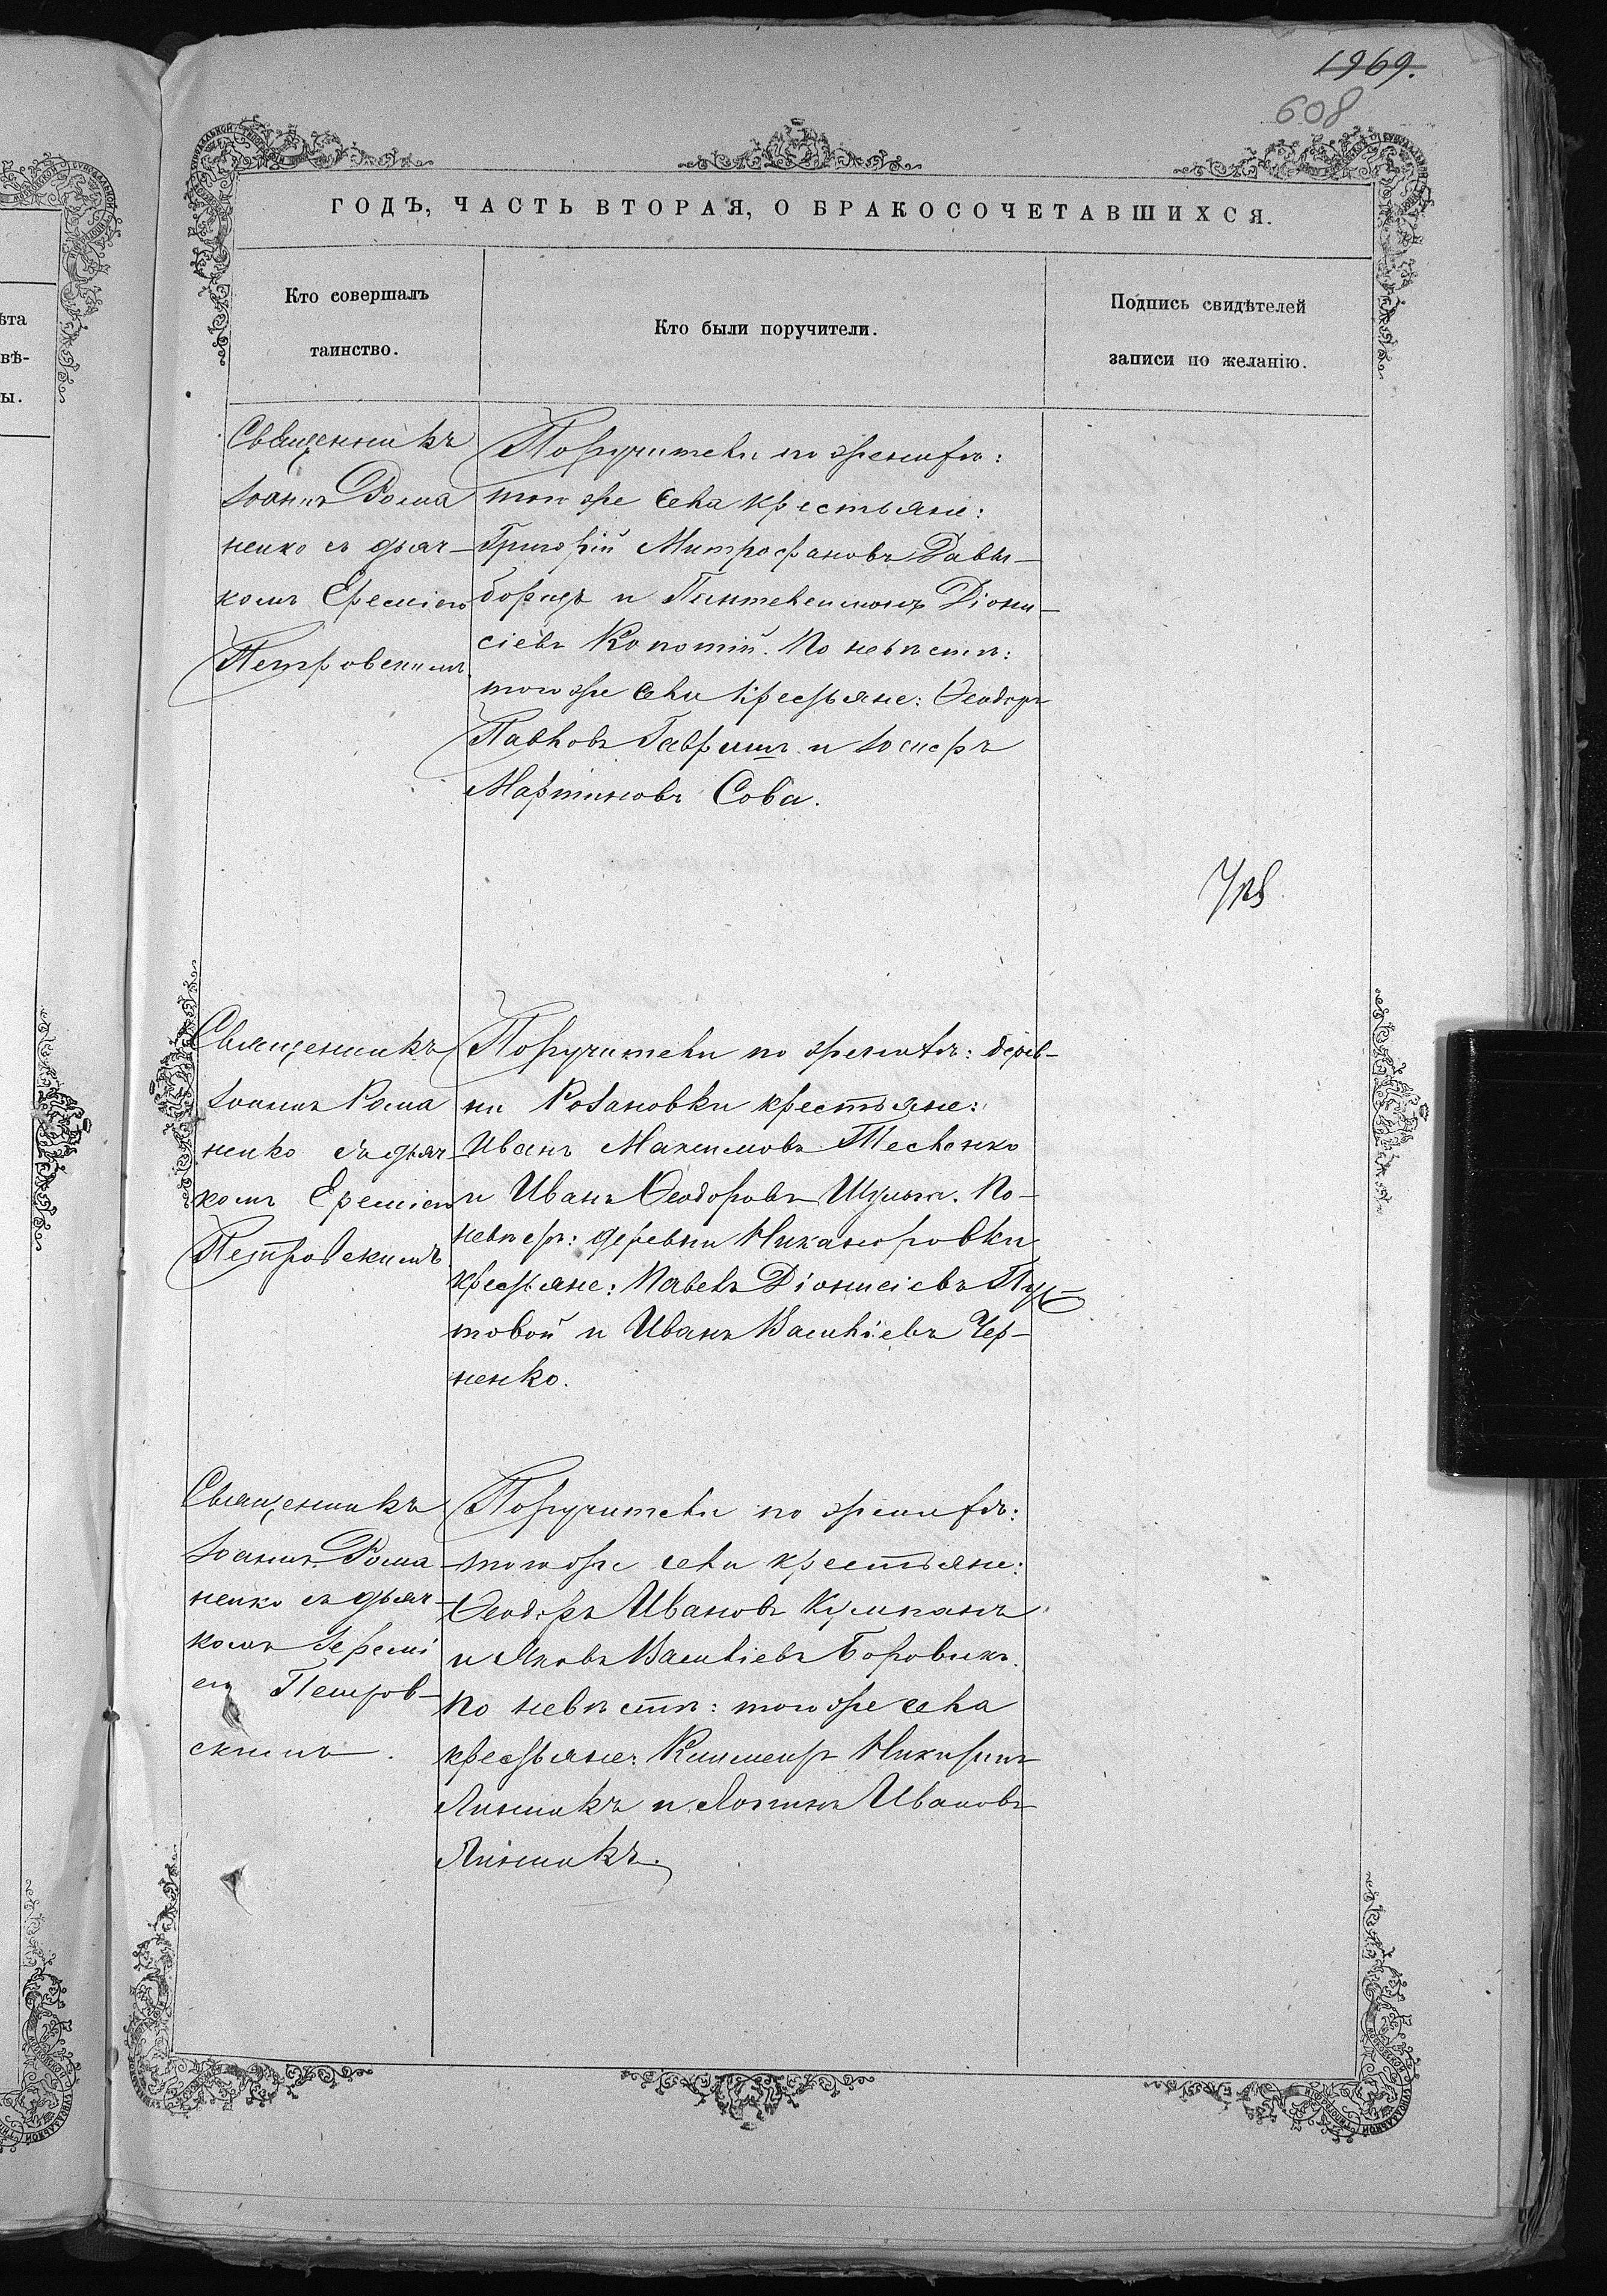 1969.
608
ГОДЪ, ЧАСТЬ ВТОРАЯ, О БРАКОСОЧЕТАВШИХСЯ.
Кто совершалъ
таинство.
Кто были поручители.
Подпись свидѣтелей
записи по желанію.
ѣта
вѣ-
ы.
Священникъ
Іоаннъ Рома
ненко съ дьяч-
комъ Ереміею
Петровскимъ.
Поручители по женихѣ:
того же села крестьяне:
Григорій Митрофановъ Давы-
борщъ и Пантелеимонъ Діони-
сіевъ Копотій. По невѣстѣ:
того же села крестьяне: Ѳеодоръ
Павловъ Гавришъ и Іосифъ
Мартиновъ Сова.
Священникъ
Іоаннъ Рома
ненко съ дьяч-
комъ Ереміею
Петровскимъ
Поручители по женихѣ: дерев-
ни Розановки крестьяне:
Иванъ Максимовъ Тесленко
и Иванъ Ѳеодоровъ. По
невѣстѣ: деревни Никаноровки
крестьяне: Павелъ Діонисіевъ Пус-
товой и Иванъ Василіевъ Чер-
ненко.
Священникъ
Іоаннъ Рома
ненко съ дьяч-
комъ Іеремі
ею Петров-
скимъ.
Поручители по женихѣ:
того же села крестьяне:
Ѳеодоръ Ивановъ Кумпанъ
и Яковъ Василіевъ Боровикъ.
По невѣстѣ: того же села
крестьяне: Климентъ
Линникъ и Логинъ Ивановъ
Линникъ.